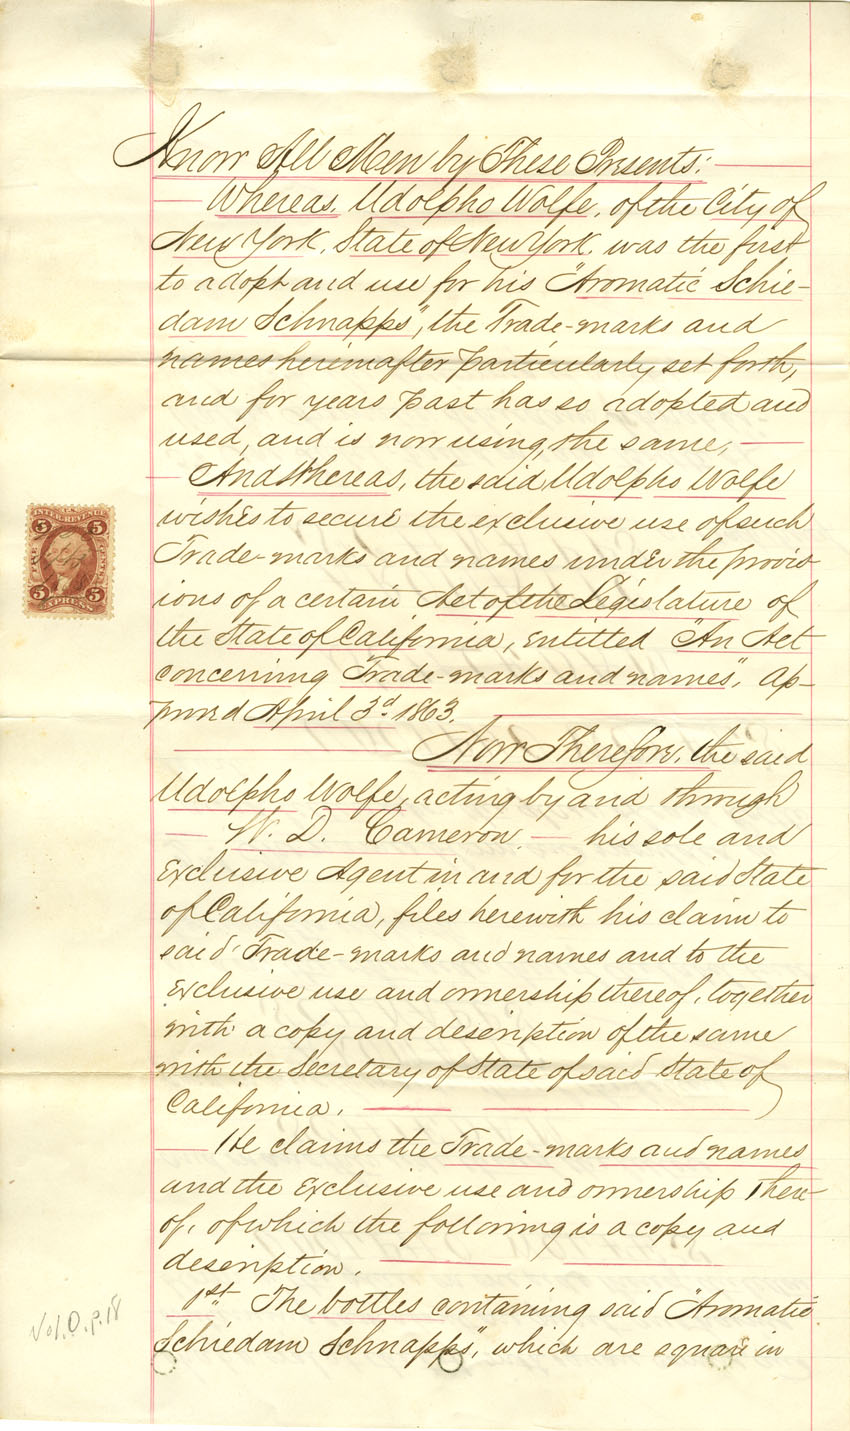 Know All Men by These Presents:
Whereas, Udolpho Wolfe, of the City of
New York, State of New York, was the first
to adopt and use for his "Aromatic Schie-
dam Schnapps", the Trade-marks and
names hereinafter particularly set forth,
and for years past has so adopted and
used, and is now using, the same,
And Whereas, the said Udolpho Wolfe
wishes to secure the exclusive use of such
Trade-marks and names under the provis-
ions of a certain Act of the Legislature of
the State of California, entitled "An Act
concerning Trade-marks and names", ap-
proved April 3d 1863.
Now Therefore, the said
Udolpho Wolfe, acting by and through
W. D. Cameron, his sole and
exclusive Agent in and for the said State
of California, files herewith his claim to
said Trade-marks and names and to the
exclusive use and ownership thereof, together
with a copy and description of the same
with the Secretary of State of said State of
California.
He claims the Trade-marks and names
and the exclusive use and ownership there-
of, of which the following is a copy and
description.
1st. The bottles containing said "Aromatic
Schiedam Schnapps", which are square in
U.S.
INTER. REVENUE
5 5
FIVE CENTS
5 5
EXPRESS
Vol. O. p. 18